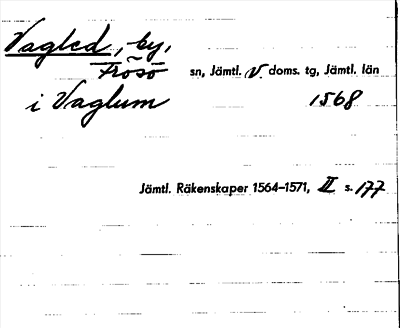 Vagled, by,
Frösö sn, Jämtl. V. doms. tg, Jämtl. län
i Vaglum 1568
Jämtl. Räkenskaper 1564–1571, II s. 177